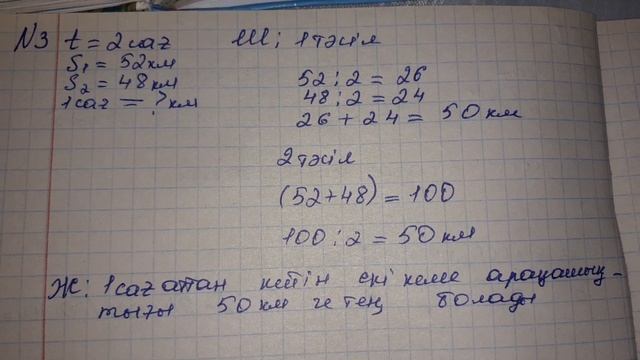 N3 t = 2 саг Ш; 1 тәсіл
S₁ = 52 км
S₂ = 48 км
1 саг = ? км
52 : 2 = 26
48 : 2 = 24
26 + 24 = 50 км
2 тәсіл
(52+48) = 100
100 : 2 = 50 км
Ж: 1 сағаттан кейін екі кеме арақашық-
тығы 50 км ге тең болады